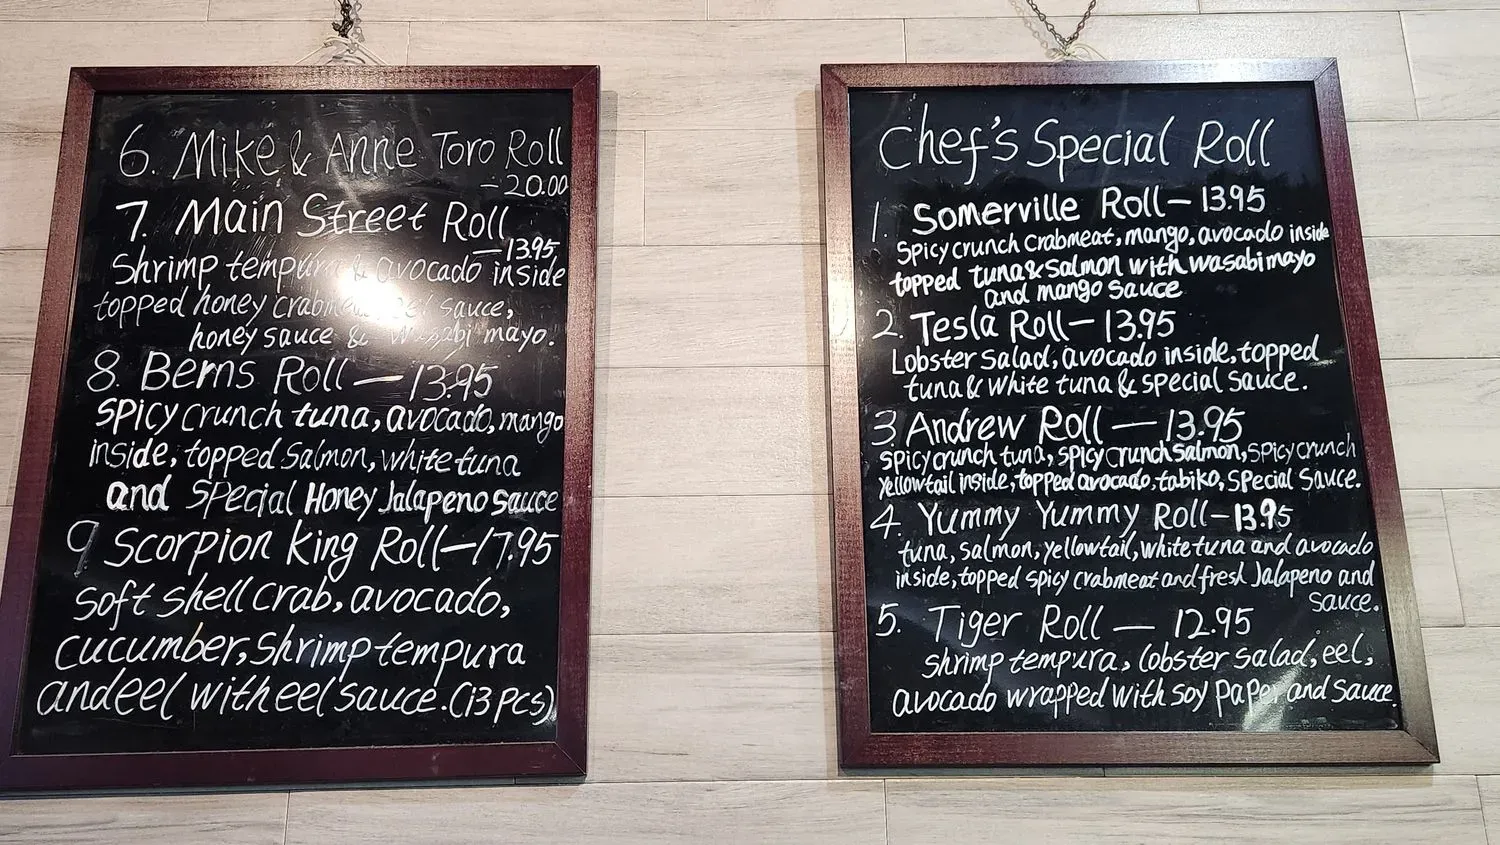 6. Mike & Anne Toro Roll
- 20.00
7. Main Street Roll
- 13.95
Shrimp tempura & avocado inside
topped honey crabmeat eel sauce,
honey sauce & wasabi mayo.
8. Berns Roll - 13.95
spicy crunch tuna, avocado, mango
inside, topped salmon, white tuna
and special Honey Jalapeno sauce
9 Scorpion king Roll - 17.95
soft shell crab, avocado,
cucumber, shrimp tempura
and eel with eel sauce. (13 pcs)
Chef's Special Roll
1. Somerville Roll - 13.95
spicy crunch crabmeat, mango, avocado inside
topped tuna & salmon with wasabi mayo
and mango sauce
2. Tesla Roll - 13.95
Lobster salad, avocado inside, topped
tuna & white tuna & special sauce.
3. Andrew Roll - 13.95
spicy crunch tuna, spicy crunch salmon, spicy crunch
yellowtail inside, topped avocado, tabiko, special sauce.
4. Yummy Yummy Roll - 13.95
tuna, salmon, yellowtail, white tuna and avocado
inside, topped spicy crabmeat and fresh Jalapeno and
sauce.
5. Tiger Roll - 12.95
shrimp tempura, lobster salad, eel,
avocado wrapped with soy paper and sauce.